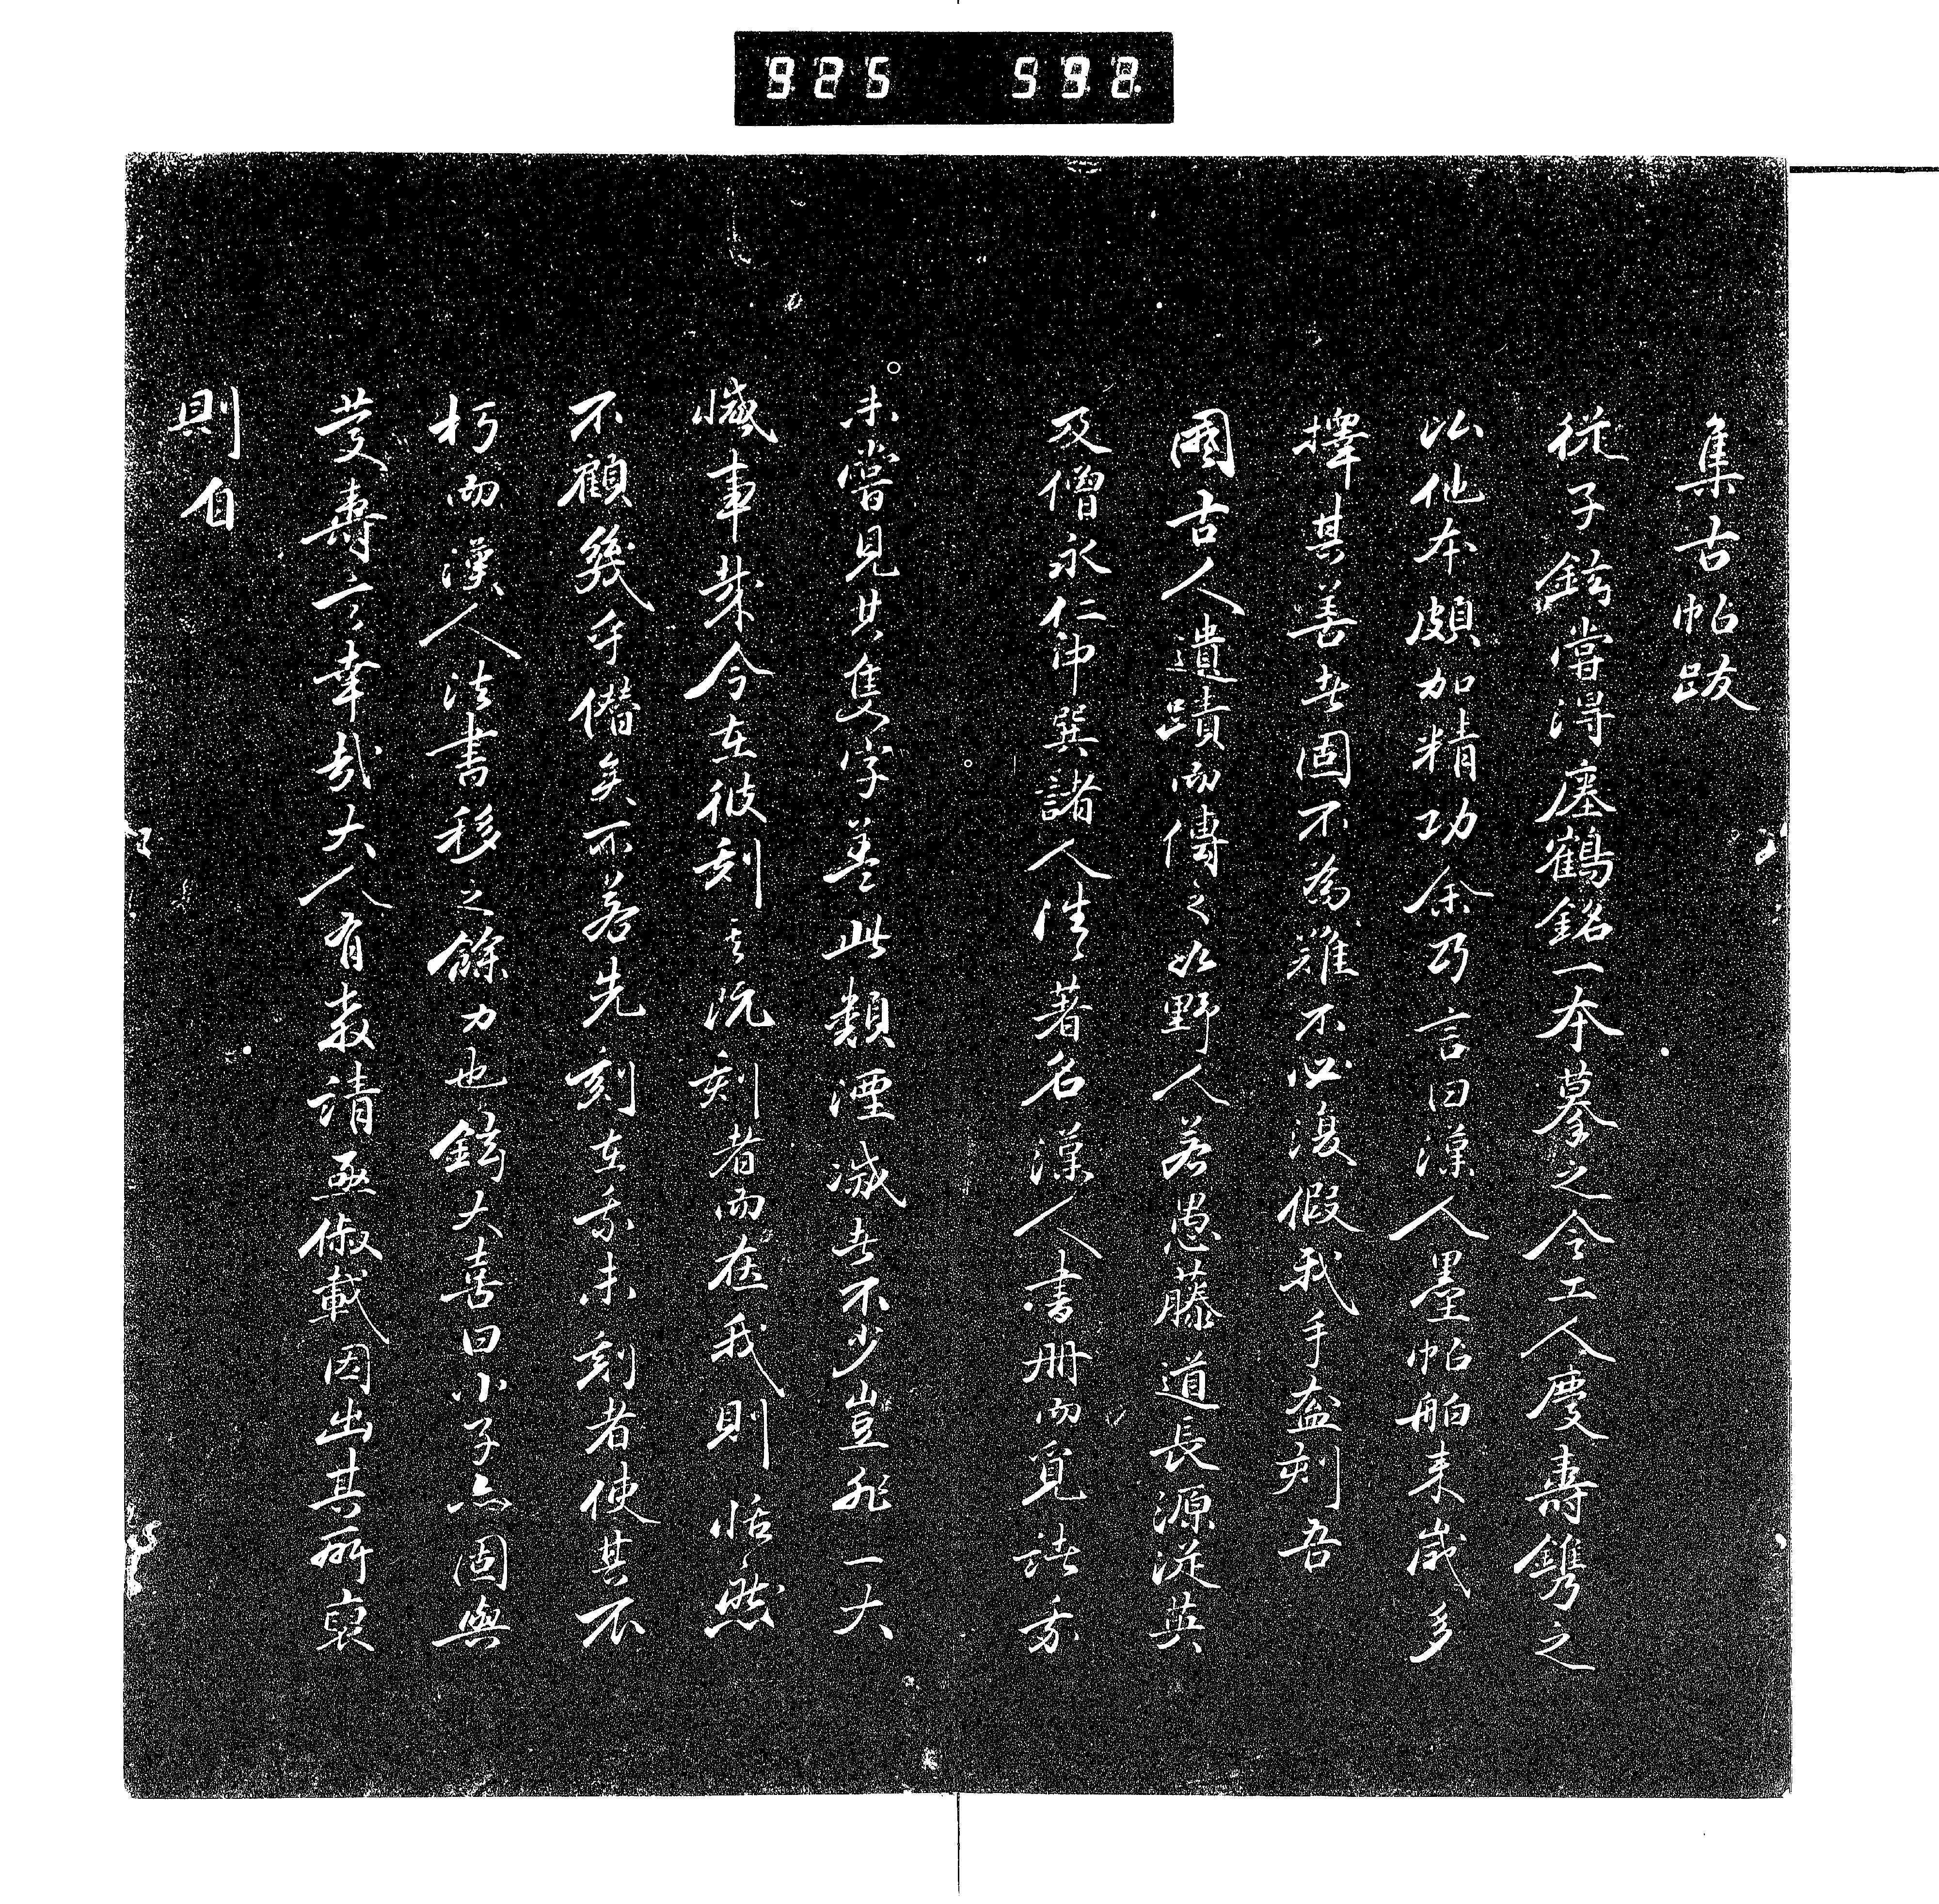 925 592
集古帖跋
從子鉉嘗得瘞鶴銘一本摹之令工人慶壽鐫之
以他本頗加精功余乃言曰漢人墨帖舶来歳多
擇其善者固不為難不必復假我手盍刻吾
國古人遺蹟而傳之如野人若愚藤道長源従英
及僧永仁沖巽諸人皆著名漢人書册而覓諸我
未嘗見其隻字蓋此類湮滅者不少豈非一大
憾事哉今在彼刻之既刻者而在我則恬然
不顧幾乎僭矣不若先刻在我未刻者使其不
朽而漢人法書移之餘力也鉉大喜曰小子亦固與
慶壽言幸哉大人有教請亟俶載因出其所裒
則自